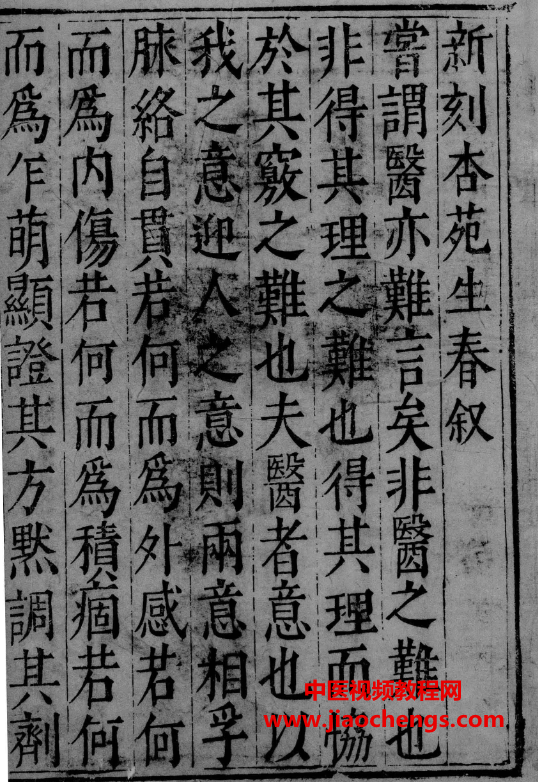 新刻杏苑生春叙
嘗謂醫亦難言矣非醫之難也
非得其理之難也得其理而恊
於其竅之難也夫醫者意也以
我之意迎人之意則兩意相孚
脉絡自貫若何而爲外感若何
而爲内傷若何而爲積痼若何
而爲乍萌顯證其方黙調其劑
中医视频教程网
www.jiaochengs.com